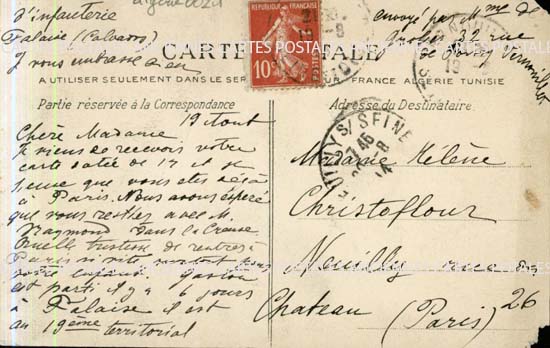 d'infanterie
Falaise (Calvados)
Je vous embrasse
envoyé par Mme de
32 rue
de Passy
CARTE POSTALE
A UTILISER SEULEMENT DANS LE SER
FRANCE ALGERIE TUNISIE
REPUBLIQUE FRANÇAISE
10
POSTES
Partie réservée à la Correspondance
Adresse du Destinataire
NEUILLY S/SEINE
19 Aout
Chère Madame
Je viens de recevoir votre
carte datée de 17 et je
pense que vous etes déjà
à Paris. Nous avons espéré
que vous restiez avec M.
Raymond dans la Creuse
Quelle tristesse de rentrer à
Paris si vite surtout pour
votre enfant. Gaston
est parti il y a 6 jours
à Falaise il est
au 19ème territorial
Madame Hélène
Christoflour
Neuilly rue du
Chateau 26
(Paris)